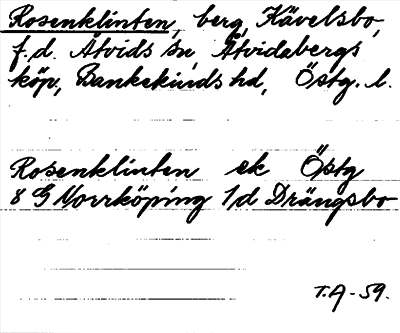 Rosenklinten, berg, Kävelsbo,
f.d. Åtvids sn, Åtvidabergs
köp, Bankekinds hd, Östg. l.
Rosenklinten ek Östg
8 G Norrköping 1/d Drängsbo
T.A-59.